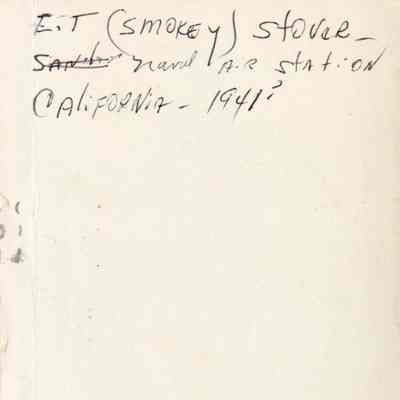 E.T (SMOKEY) STOVER -
Naval AIR STATION
CALIFORNIA - 1941?